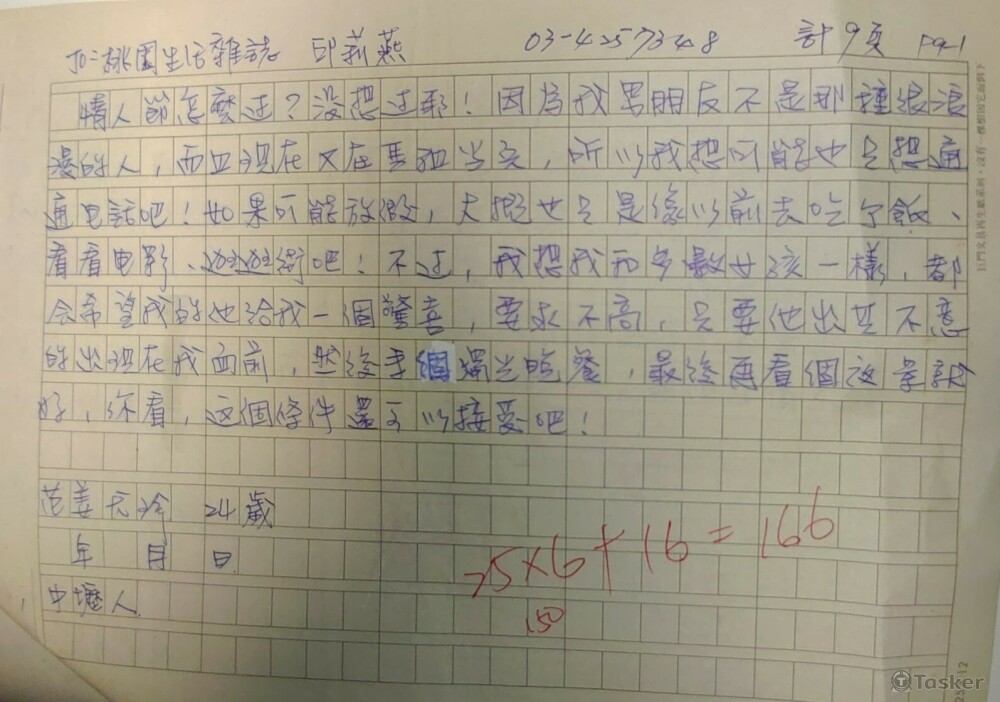 To:桃園生活雜誌 邱莉燕 03-4257348 計9頁 Pg-1
情人節怎麼过?沒想过耶!因為我男朋友不是那種很浪
漫的人,而且现在又在馬祖当兵,所以我想可能也只想通
通电話吧!如果可能放假,大概也只是像以前去吃个飯、
看看电影、逛逛街吧!不过,我想我和多數女孩一樣,都
会希望我的他給我一個驚喜,要求不高,只要他出其不意
的出现在我面前,然後享個燭光晚餐,最後再看個夜景就
好,你看,这個條件還可以接受吧!
范姜 24歲
年 月 日
中壢人
25×6+16=166
150
Tasker